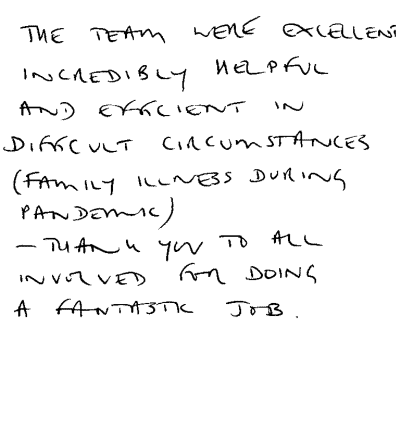 THE TEAM WERE EXCELLENT
INCREDIBLY HELPFUL
AND EFFICIENT IN
DIFFICULT CIRCUMSTANCES
(FAMILY ILLNESS DURING
PANDEMIC)
- THANK YOU TO ALL
INVOLVED FOR DOING
A FANTASTIC JOB.